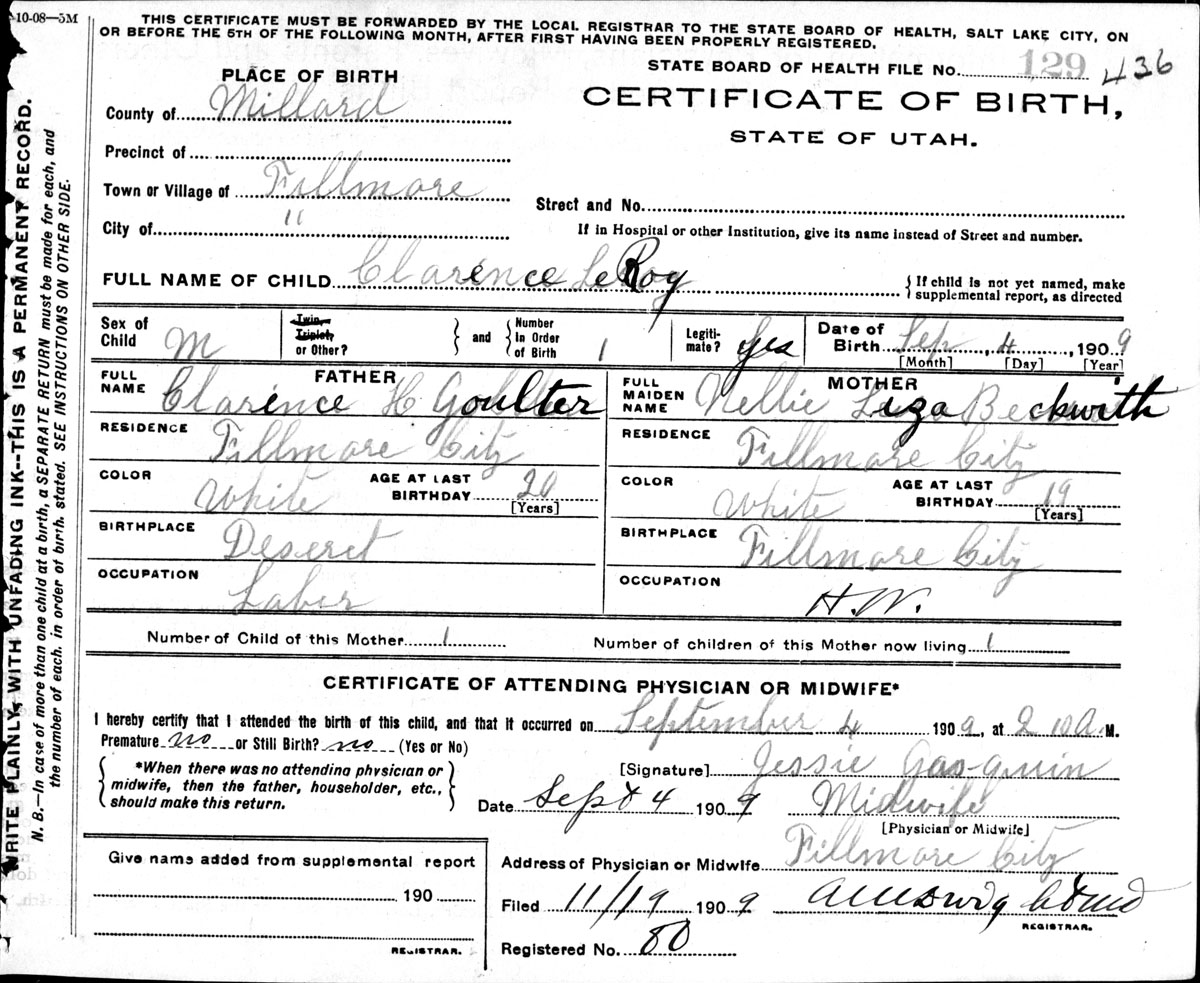 10-08—5M
THIS CERTIFICATE MUST BE FORWARDED BY THE LOCAL REGISTRAR TO THE STATE BOARD OF HEALTH, SALT LAKE CITY, ON
OR BEFORE THE 5TH OF THE FOLLOWING MONTH, AFTER FIRST HAVING BEEN PROPERLY REGISTERED.
STATE BOARD OF HEALTH FILE No. 129 436
PLACE OF BIRTH
CERTIFICATE OF BIRTH,
STATE OF UTAH.
County of Millard
Precinct of
Town or Village of Fillmore
Street and No.
City of "
If in Hospital or other Institution, give its name instead of Street and number.
FULL NAME OF CHILD Clarence LeRoy
{If child is not yet named, make supplemental report, as directed
Sex of Child M
Twin, Triplet, or Other? } and { Number in Order of Birth 1
Legitimate? Yes
Date of Birth Sep, 4, 1909
[Month] [Day] [Year]
FATHER
FULL NAME Clarence H Goulter
RESIDENCE Fillmore City
COLOR White
AGE AT LAST BIRTHDAY 20 [Years]
BIRTHPLACE Deseret
OCCUPATION Labor
MOTHER
FULL MAIDEN NAME Nellie Liza Beckwith
RESIDENCE Fillmore City
COLOR White
AGE AT LAST BIRTHDAY 19 [Years]
BIRTHPLACE Fillmore City
OCCUPATION H.W.
Number of Child of this Mother 1
Number of children of this Mother now living 1
CERTIFICATE OF ATTENDING PHYSICIAN OR MIDWIFE*
I hereby certify that I attended the birth of this child, and that it occurred on September 4 1909, at 2 10 A.M.
Premature no or Still Birth? no (Yes or No)
{*When there was no attending physician or midwife, then the father, householder, etc., should make this return.}
[Signature] Jessie Gasquin
Date Sept 4 1909 Midwife
[Physician or Midwife]
Address of Physician or Midwife Fillmore City
Give name added from supplemental report
190
REGISTRAR.
Filed 11/19 1909
REGISTRAR.
Registered No. 80
WRITE PLAINLY, WITH UNFADING INK--THIS IS A PERMANENT RECORD.
N. B.—In case of more than one child at a birth, a SEPARATE RETURN must be made for each, and
the number of each, in order of birth, stated. SEE INSTRUCTIONS ON OTHER SIDE.